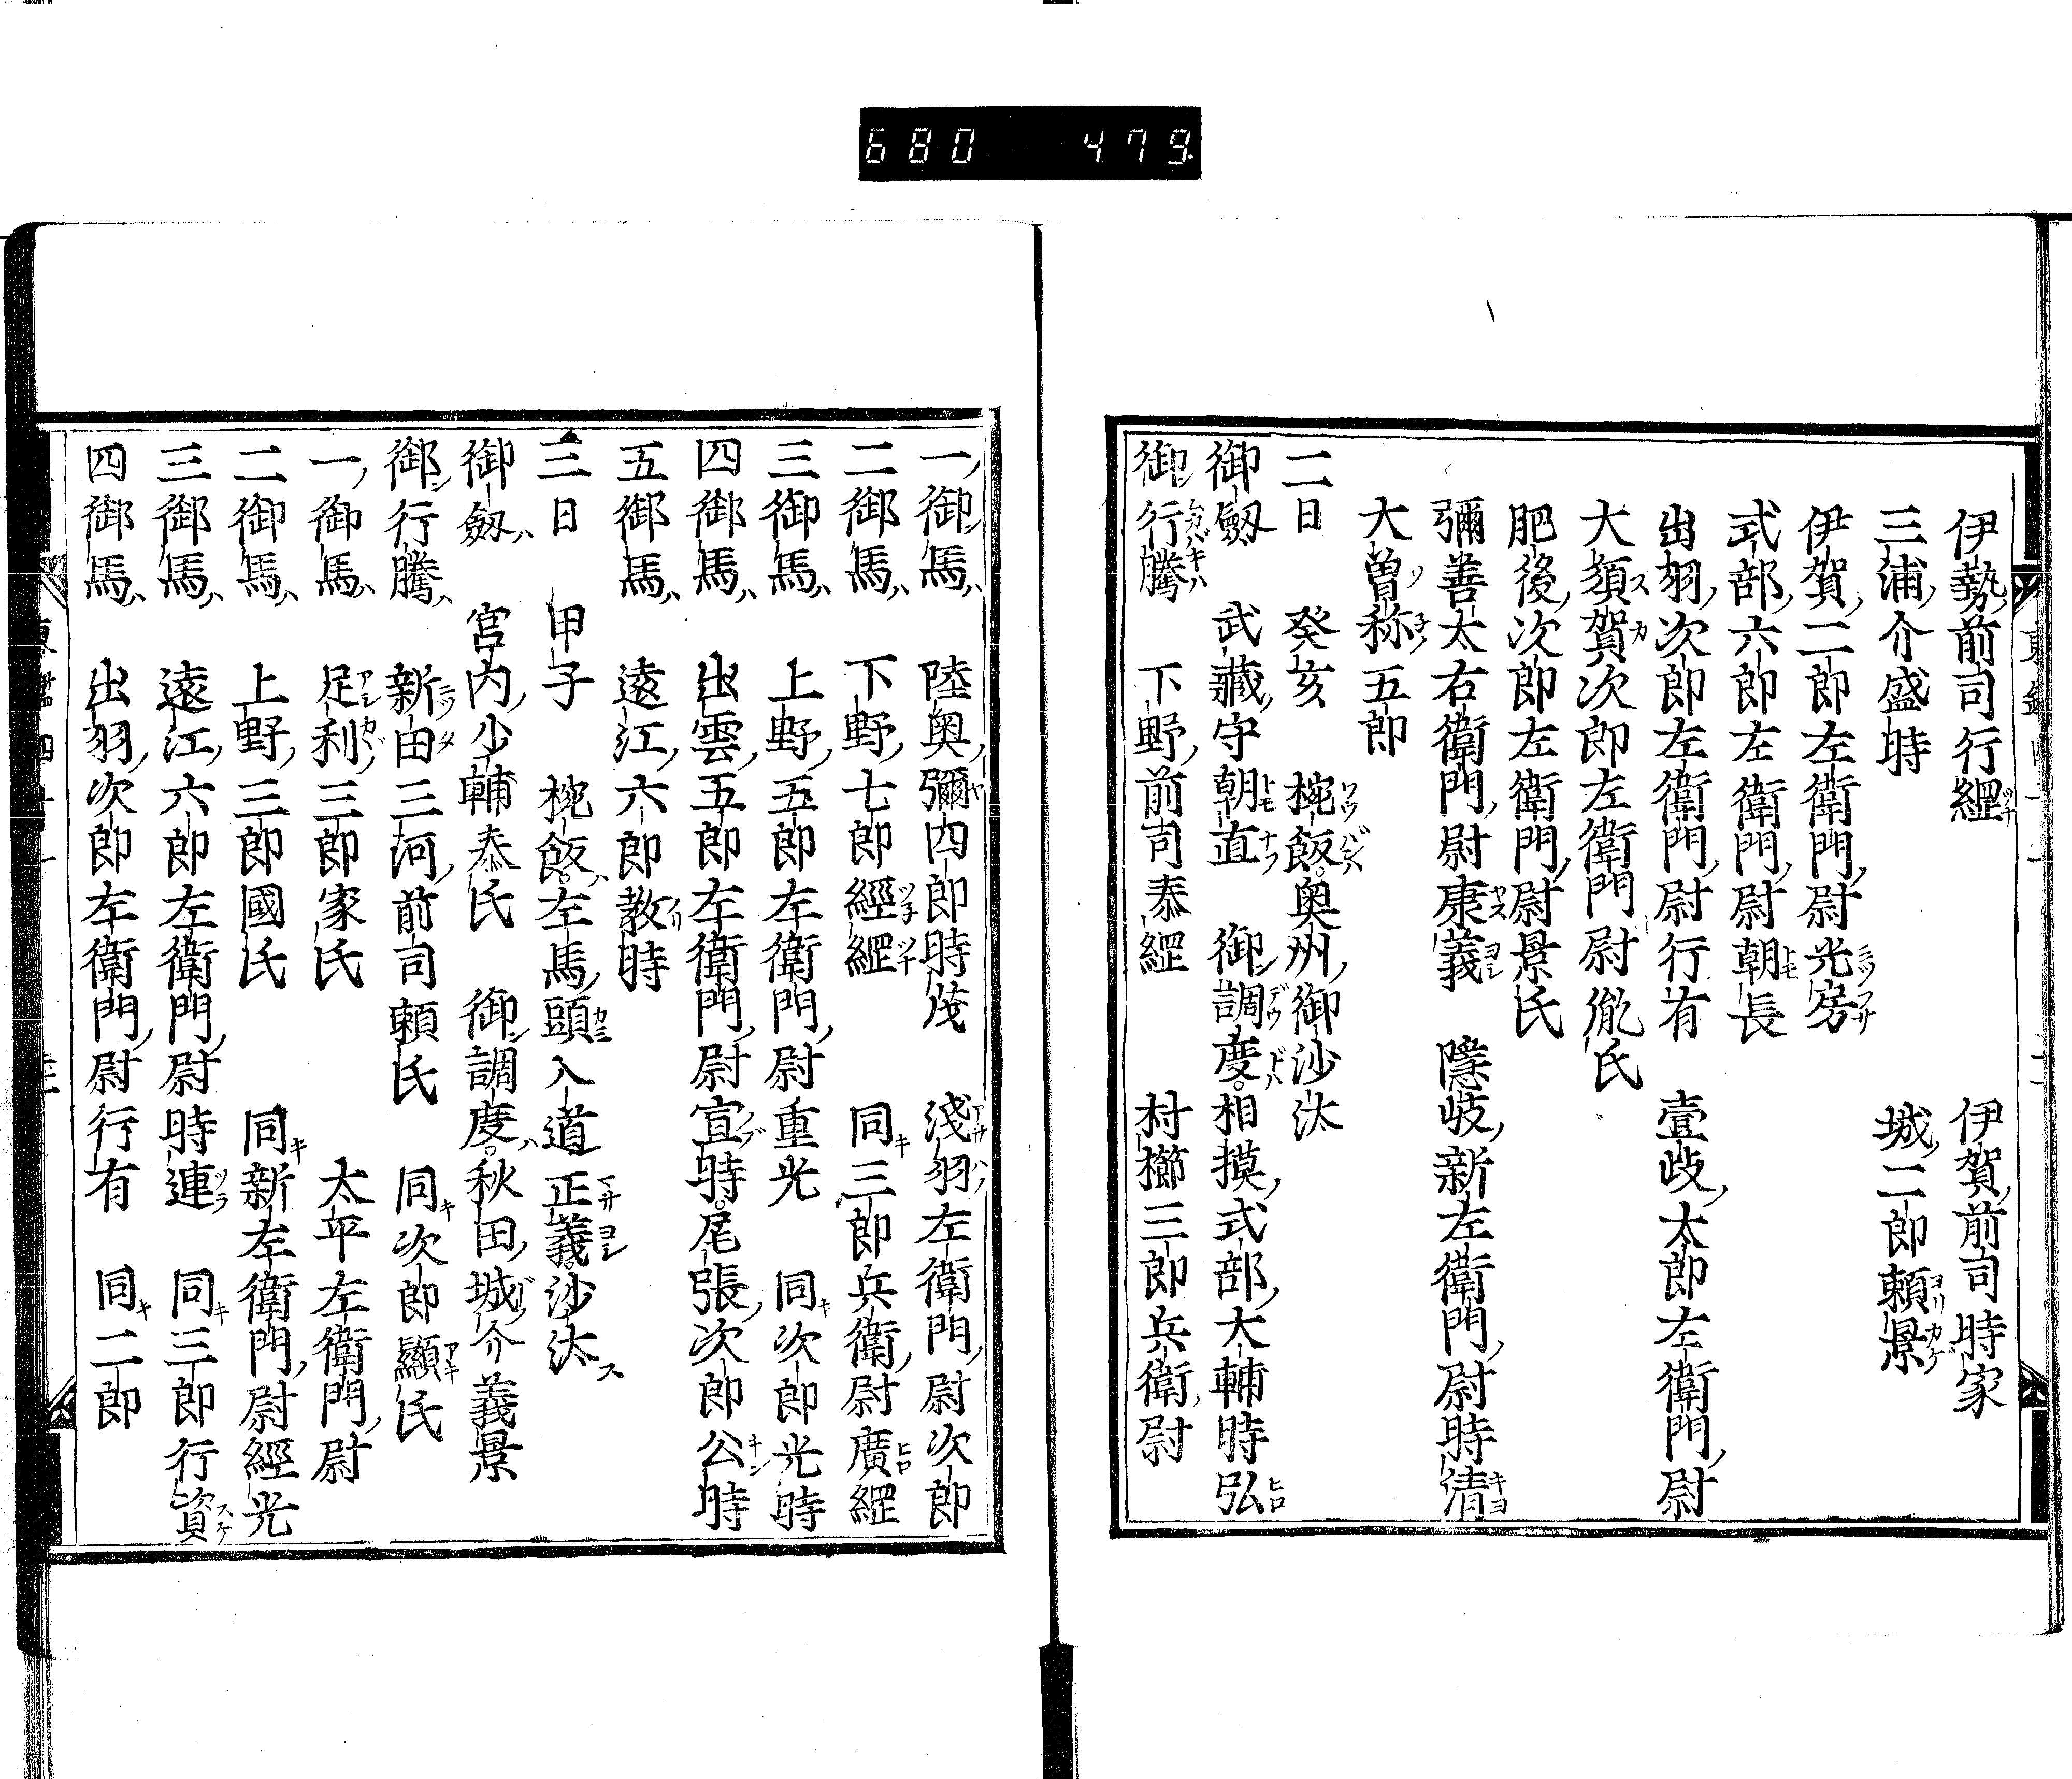 680 479
伊勢前司行經 伊賀前司時家
三浦介盛時 城二郎頼景
伊賀二郎左衛門尉光房
式部六郎左衛門尉朝長
出羽次郎左衛門尉行有 壹歧太郎左衛門尉
大須賀次郎左衛門尉胤氏
肥後次郎左衛門尉景氏
彌善太右衛門尉康義 隱岐新左衛門尉時清
大曽称五郎
二日 癸亥 椀飯奥州御沙汰
御劔 武藏守朝直 御調度相摸式部大輔時弘
御行騰 下野前司泰經 村櫛三郎兵衛尉
一御馬 陸奥彌四郎時茂 淺羽左衛門尉次郎
二御馬 下野七郎經經 同三郎兵衛尉廣經
三御馬 上野五郎左衛門尉重光 同次郎光時
四御馬 出雲五郎左衛門尉宣時尾張次郎公時
五御馬 遠江六郎教時
三日 甲子 椀飯左馬頭入道正義沙汰
御劔 宮内少輔泰氏 御調度秋田城介義景
御行騰 新田三河前司頼氏 同次郎顯氏
一御馬 足利三郎家氏 太平左衛門尉
二御馬 上野三郎國氏 同新左衛門尉經光
三御馬 遠江六郎左衛門尉時連 同三郎行資
四御馬 出羽次郎左衛門尉行有 同二郎